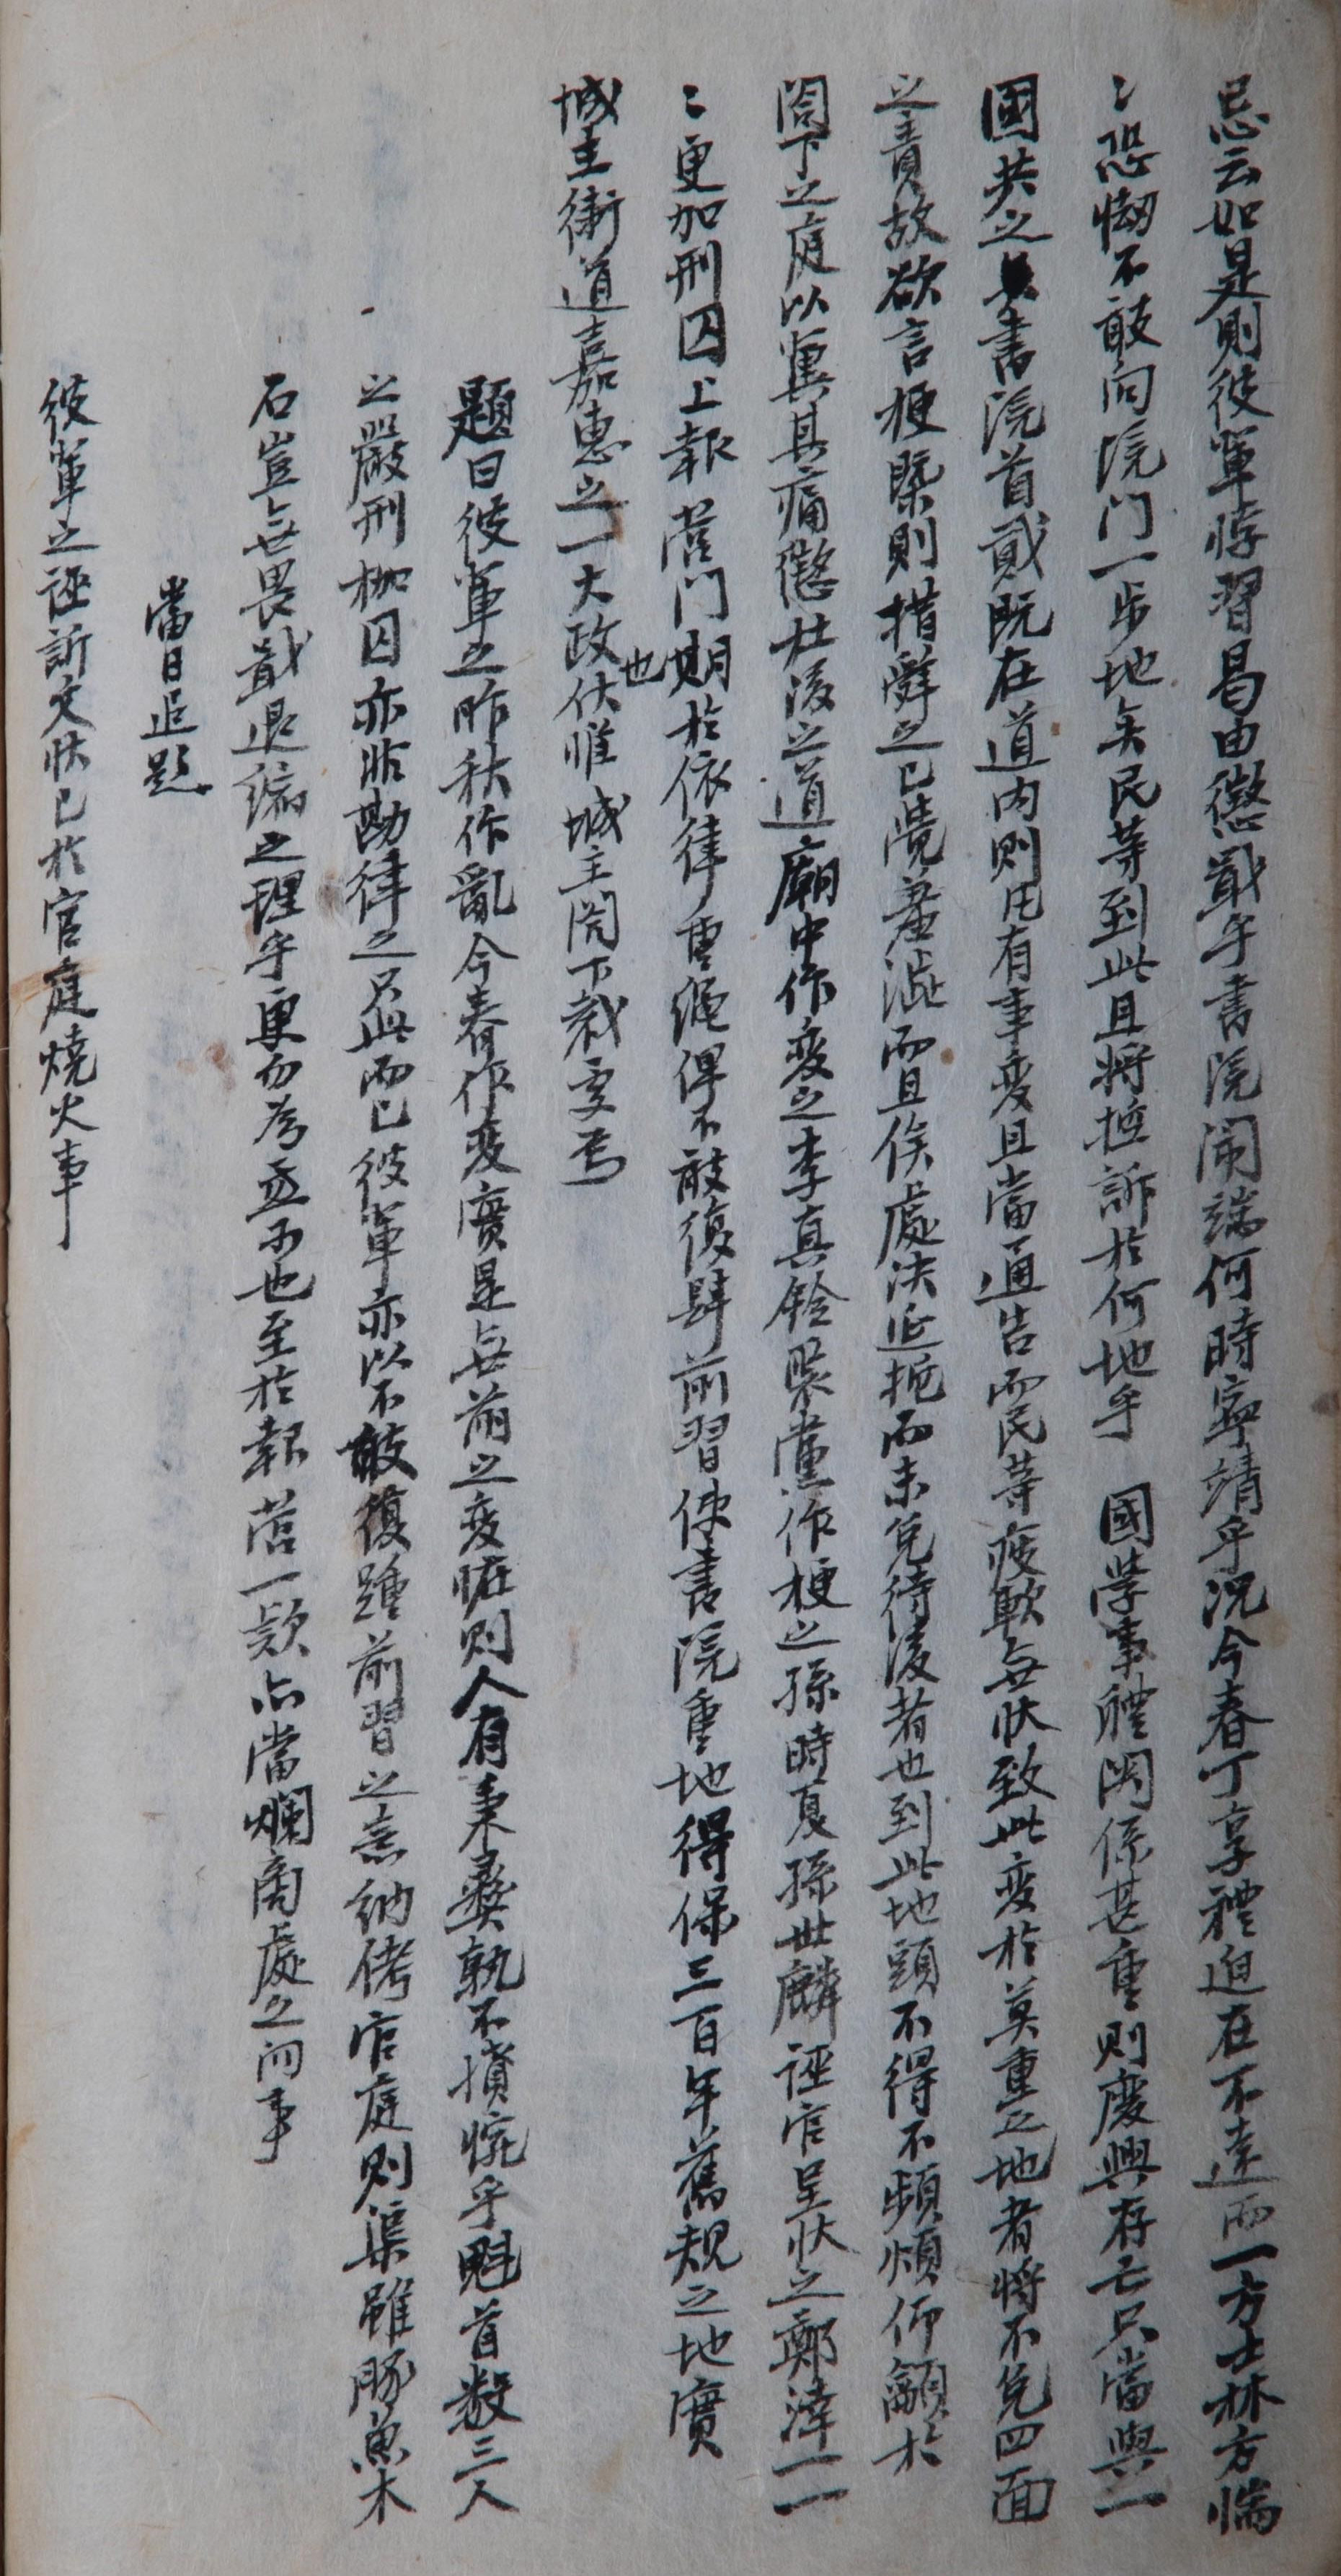 忌云如是則彼軍悖習曷由懲戢乎書院鬧端何時寧靖乎况今春丁享禮迫在不遠而一方士林方惴
〻恐惱不敢向院门一步地矣民等到此且将控訴於何地乎 國學事軆関係甚重則廢興存亡只當與一
國共之書院首貳旣在道内則用有事變且當通告而民等疲軟無狀致此變於莫重之地者将不免四面
之責故欲言梗槩則措辞之已覺羞澁而且俟處决延拖而未免待後者也到此地頭不得不頻煩仰籲於
閤下之庭以冀其痛懲杜後之道廟中作變之李真銓聚黨作梗之孫時夏孫世麟誣官呈狀之鄭滓一一
〻更加刑囚上報 营门期於依律重繩俾不敢復肆前習使書院重地得保三百年舊規之地實
城主衛道嘉惠之一大政也伏惟 城主閤下裁処焉
題曰彼軍之昨秋作亂今春作変實是無前之変恠則人有秉彛孰不憤惋乎魁首数三人
之嚴刑枷囚亦非勘律之只此而已彼軍亦以不敢復踵前習之意納侤官庭則渠雖豚魚木
石豈無畏戢退縮之理乎更勿為亟可也至於報 营一欵亦當爛商處之向事
當日追題
彼軍之誣訴文狀已於官庭燒火事